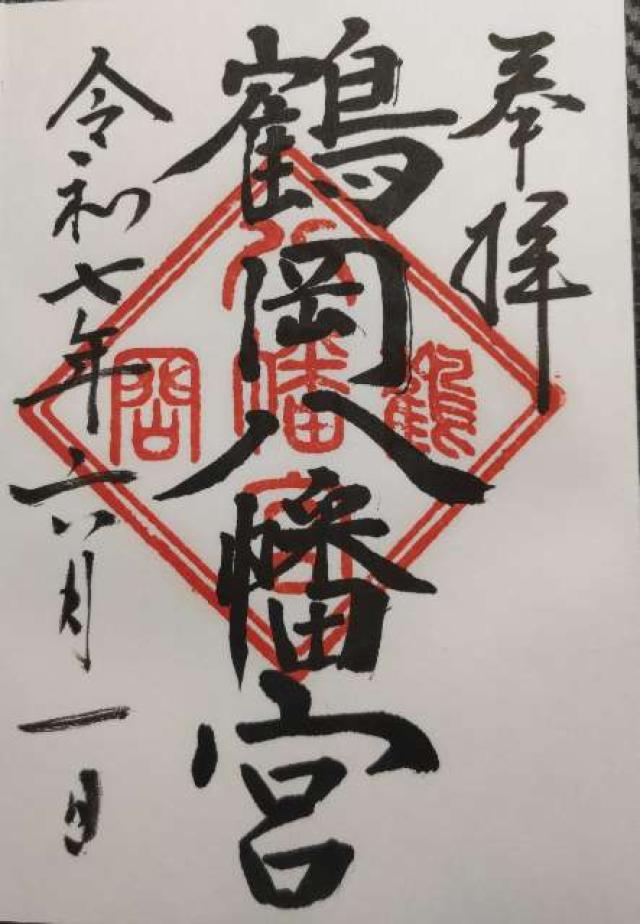 奉拝
鶴岡八幡宮
令和七年六月一日
鶴
八幡宮
岡